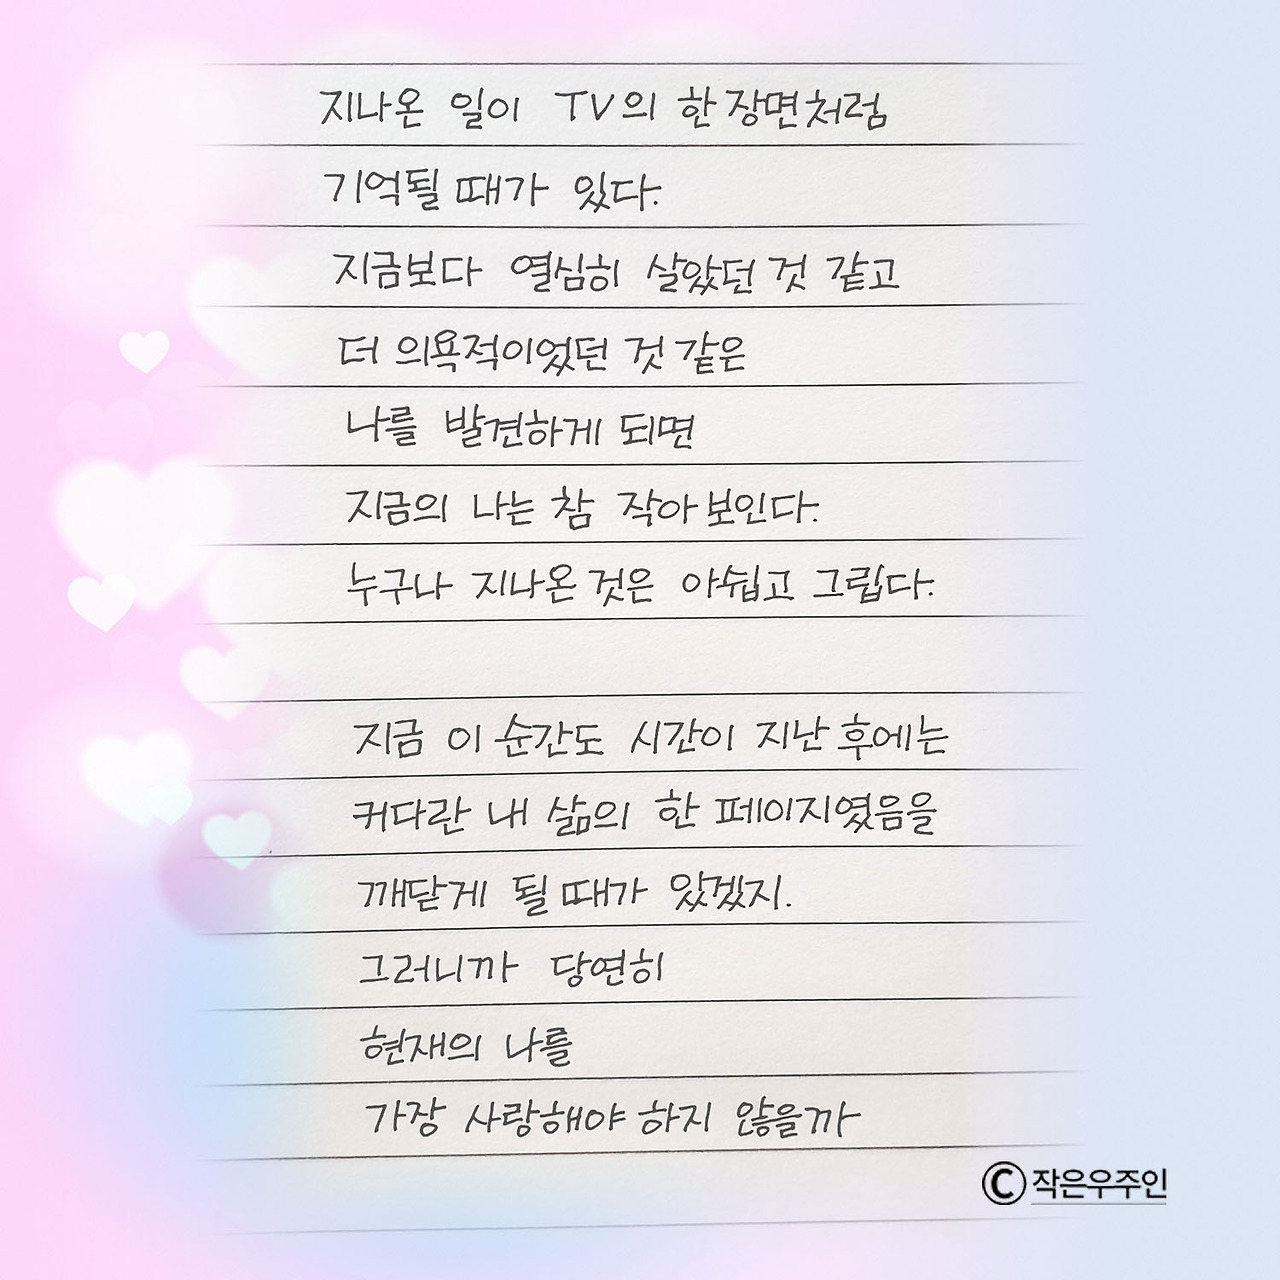 지나온 일이 TV의 한 장면처럼
기억될 때가 있다.
지금보다 열심히 살았던 것 같고
더 의욕적이었던 것 같은
나를 발견하게 되면
지금의 나는 참 작아 보인다.
누구나 지나온 것은 아쉽고 그립다.
지금 이 순간도 시간이 지난 후에는
커다란 내 삶의 한 페이지였음을
깨닫게 될 때가 있겠지.
그러니까 당연히
현재의 나를
가장 사랑해야 하지 않을까
©작은우주인